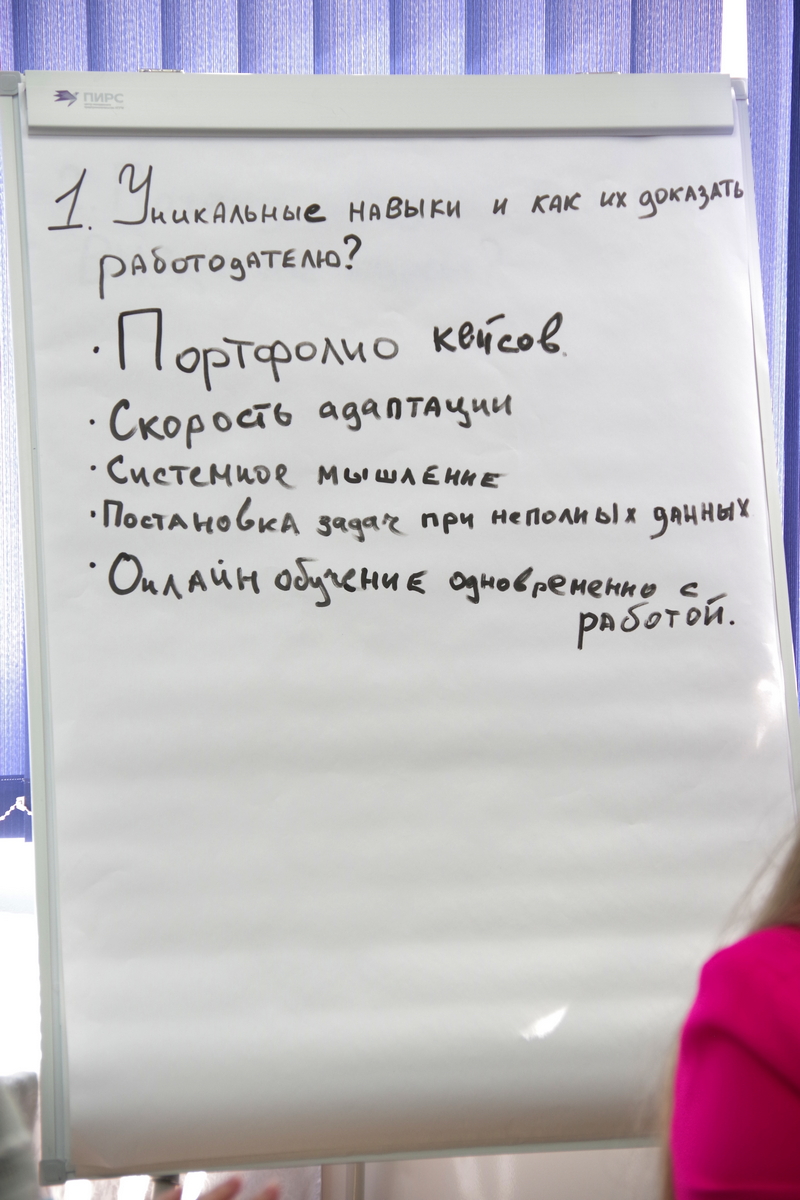 ПИРС
1. Уникальные навыки и как их доказать
работодателю?
· Портфолио кейсов.
· Скорость адаптации
· Системное мышление
· Постановка задач при неполных данных
· Онлайн обучение одновременно с
работой.